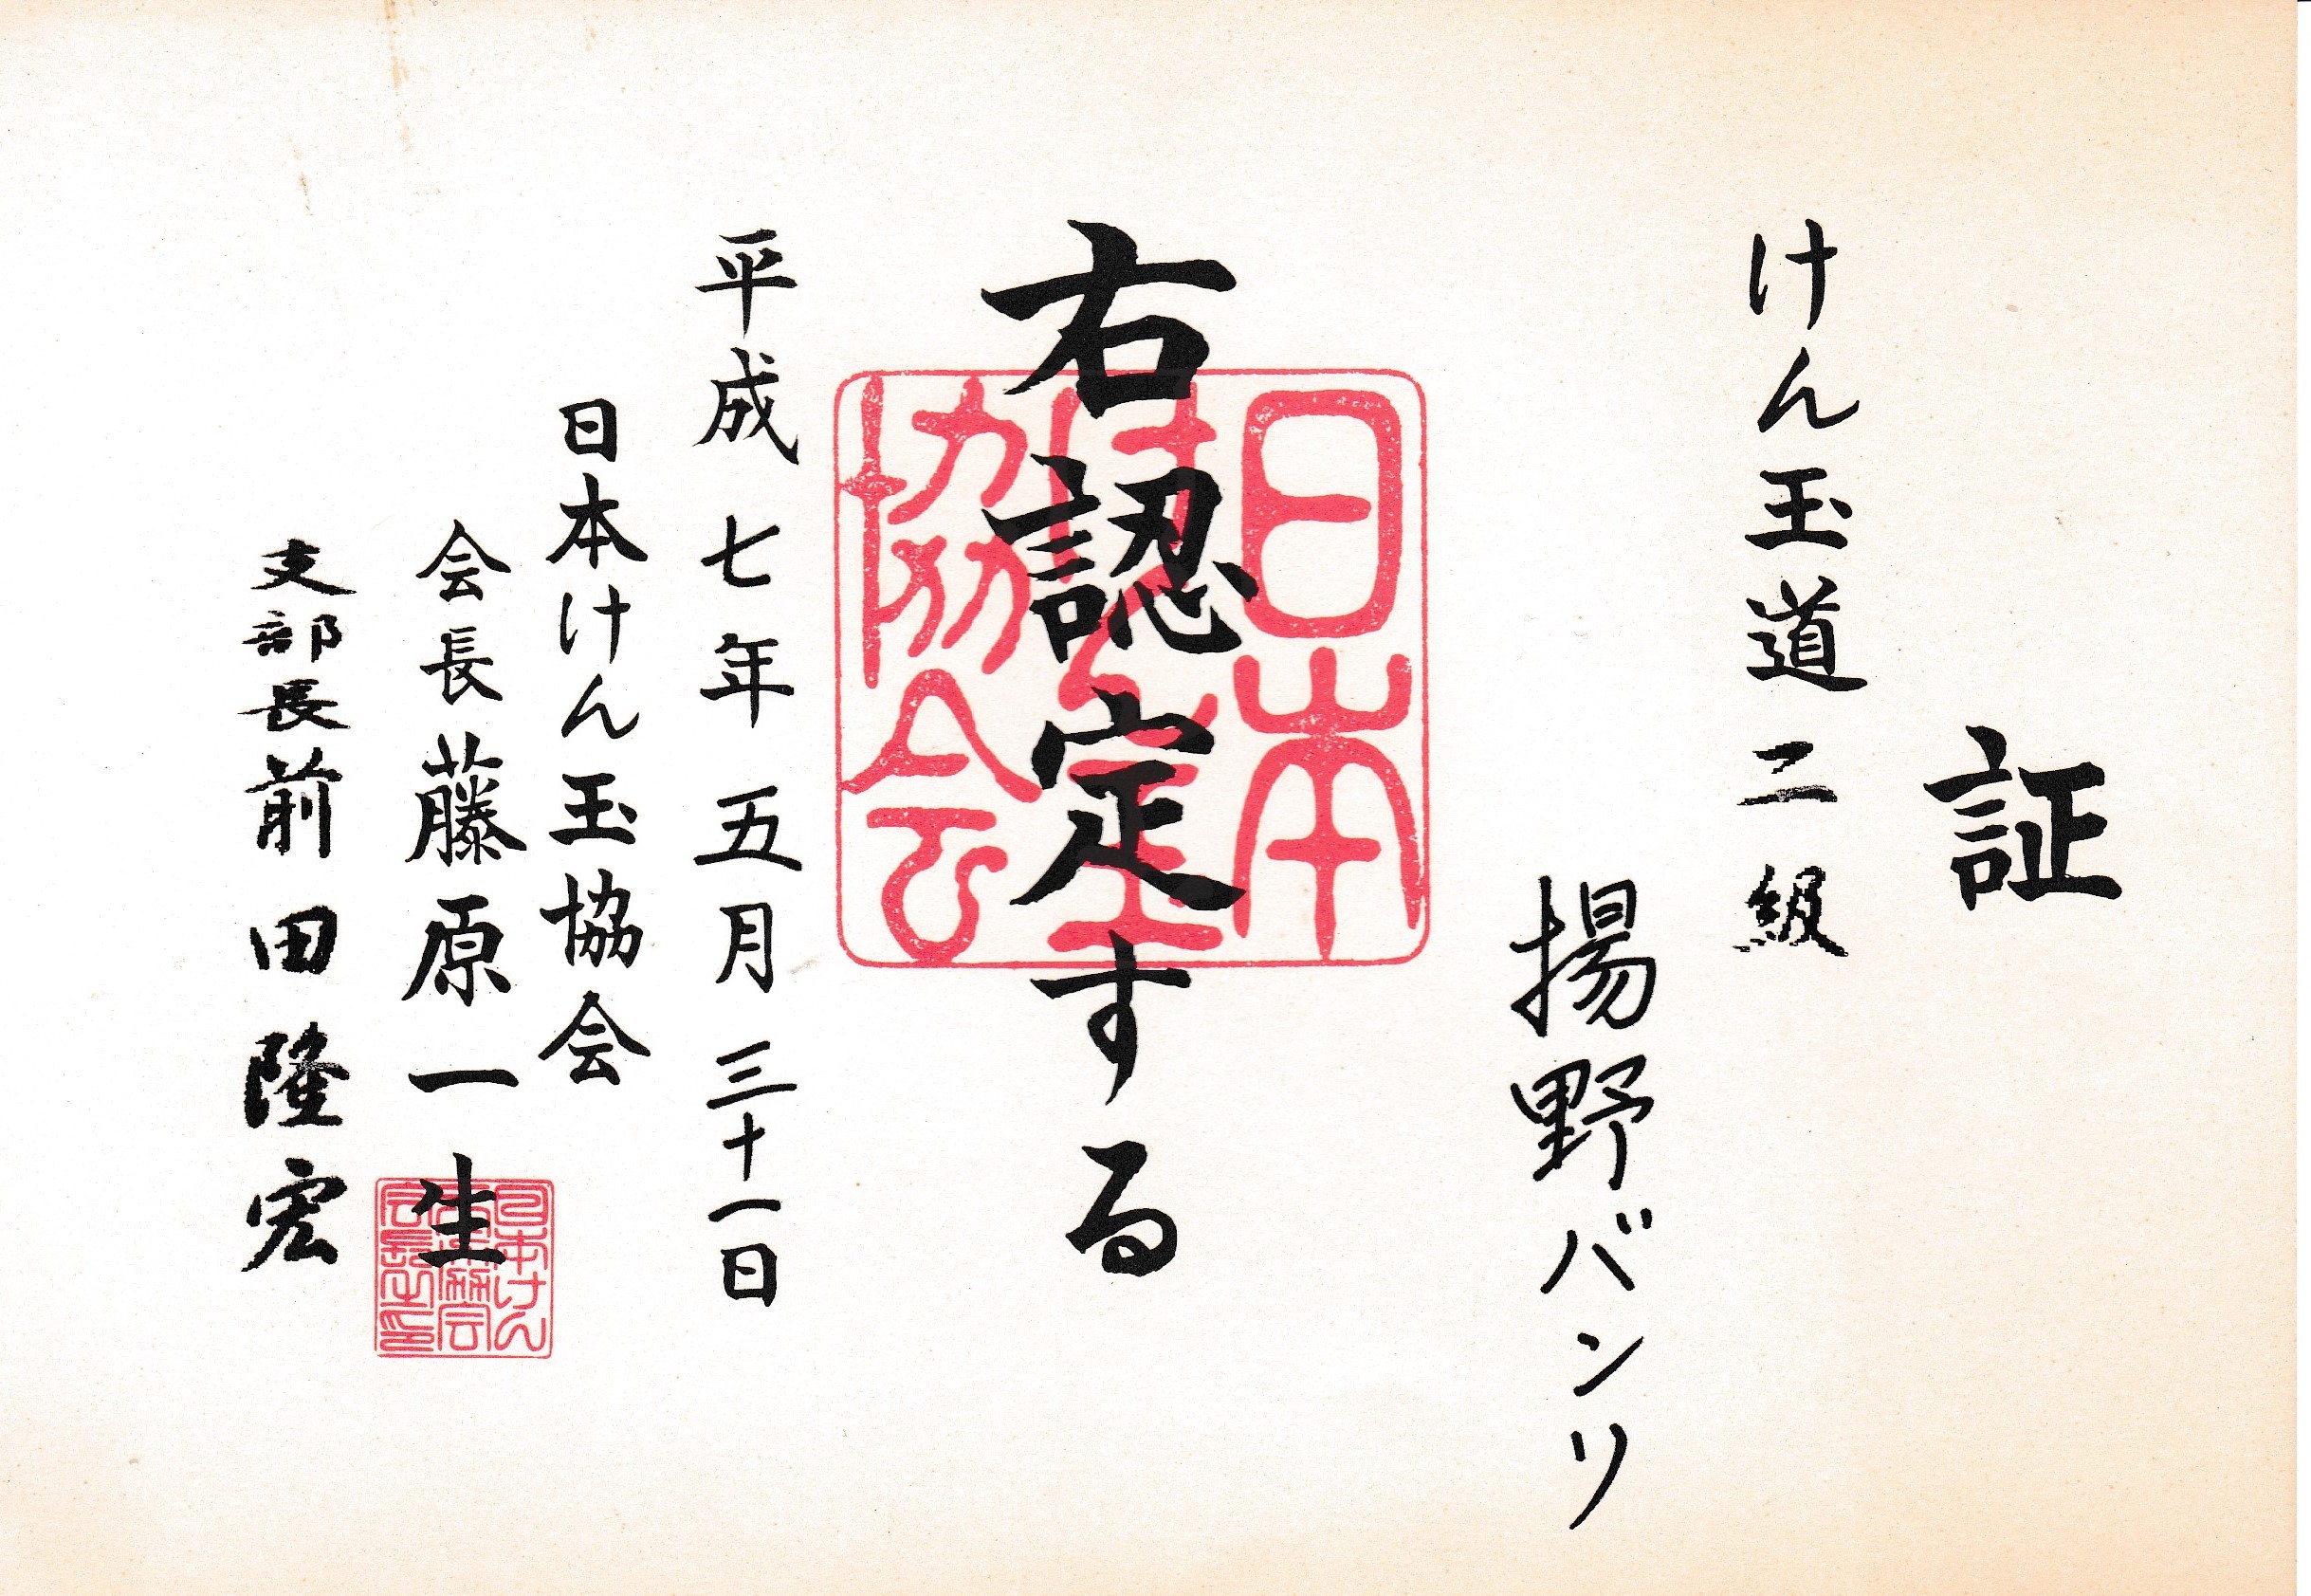 証
けん玉道二級
揚野バンリ
右認定する
日本
けん玉
協会
平成七年五月三十一日
日本けん玉協会
会長藤原一生
日本けん
玉協会
会長之印
支部長前田隆宏